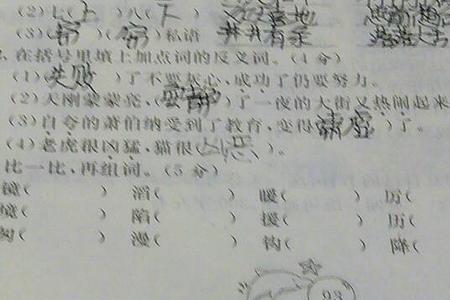 (2)七(上)八(下)
(3)(窃)(窃)私语 井井有条
在括号里填上加点词的反义词。(4分)
(1)(失败)了不要灰心,成功了仍要努力。
(2)天刚蒙蒙亮,( )了一夜的大街又热闹起来
(3)自夸的萧伯纳受到了教育,变得(谦虚)了。
(4)老虎很凶猛,猫很( )。
比一比,再组词。(5分)
镜( ) 滔( ) 暖( ) 厉( )
境( ) 陷( ) 援( ) 历( )
( ) 漫( ) 钩( ) 降( )
93